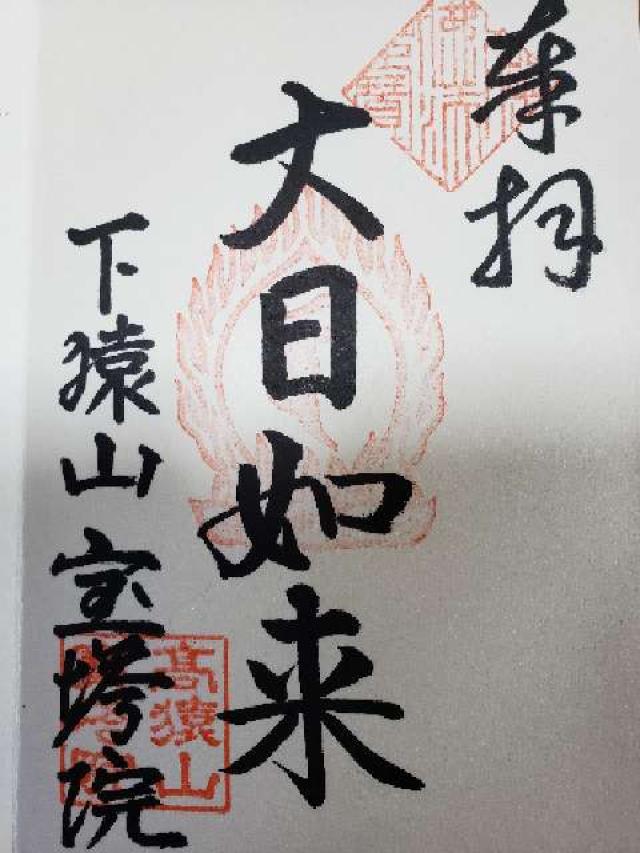 奉拝
大日如来
下猿山 宝塔院
高猿山